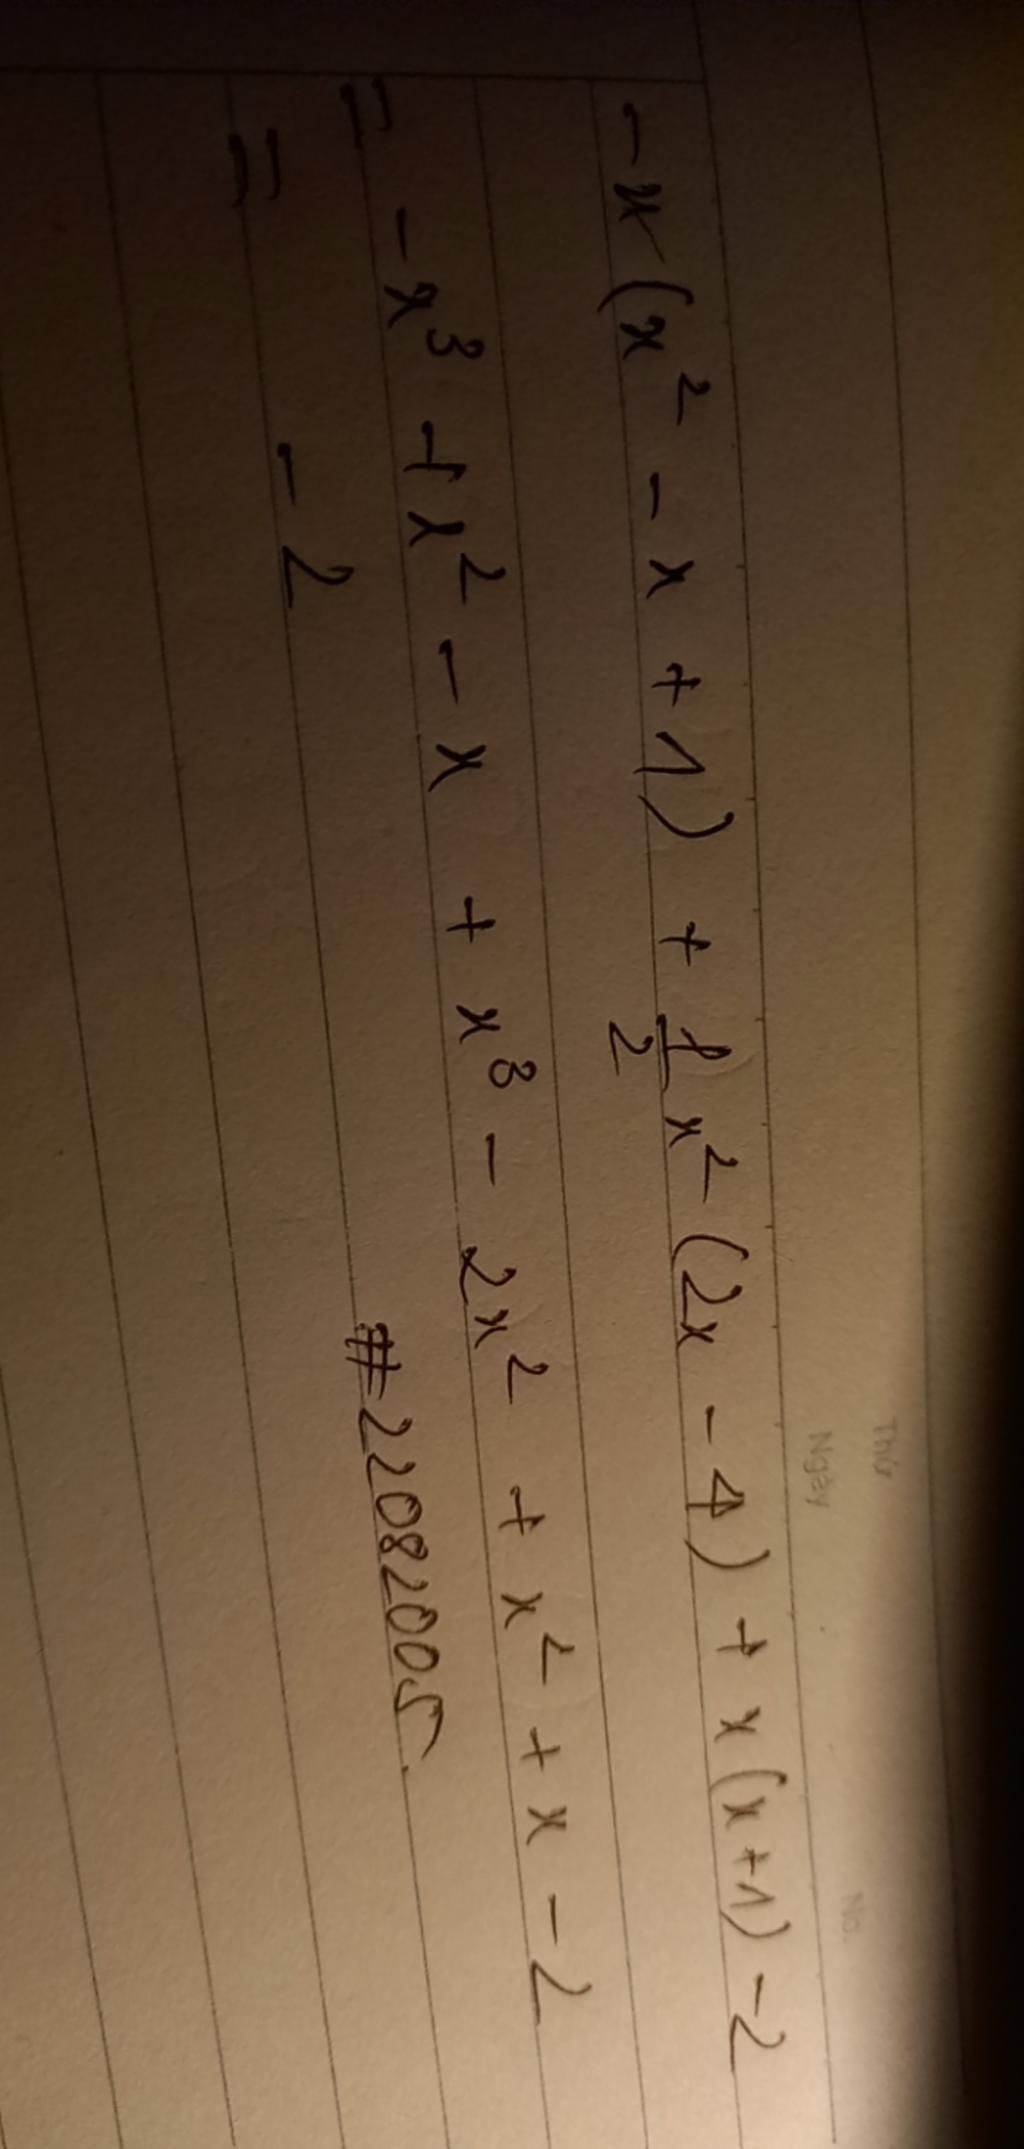 Thứ
Ngày
No.
-x(x² - x + 1) + 1/2 x² (2x - 4) + x(x+1) - 2
= -x³ + x² - x + x³ - 2x² + x² + x - 2
= -2
#22082005